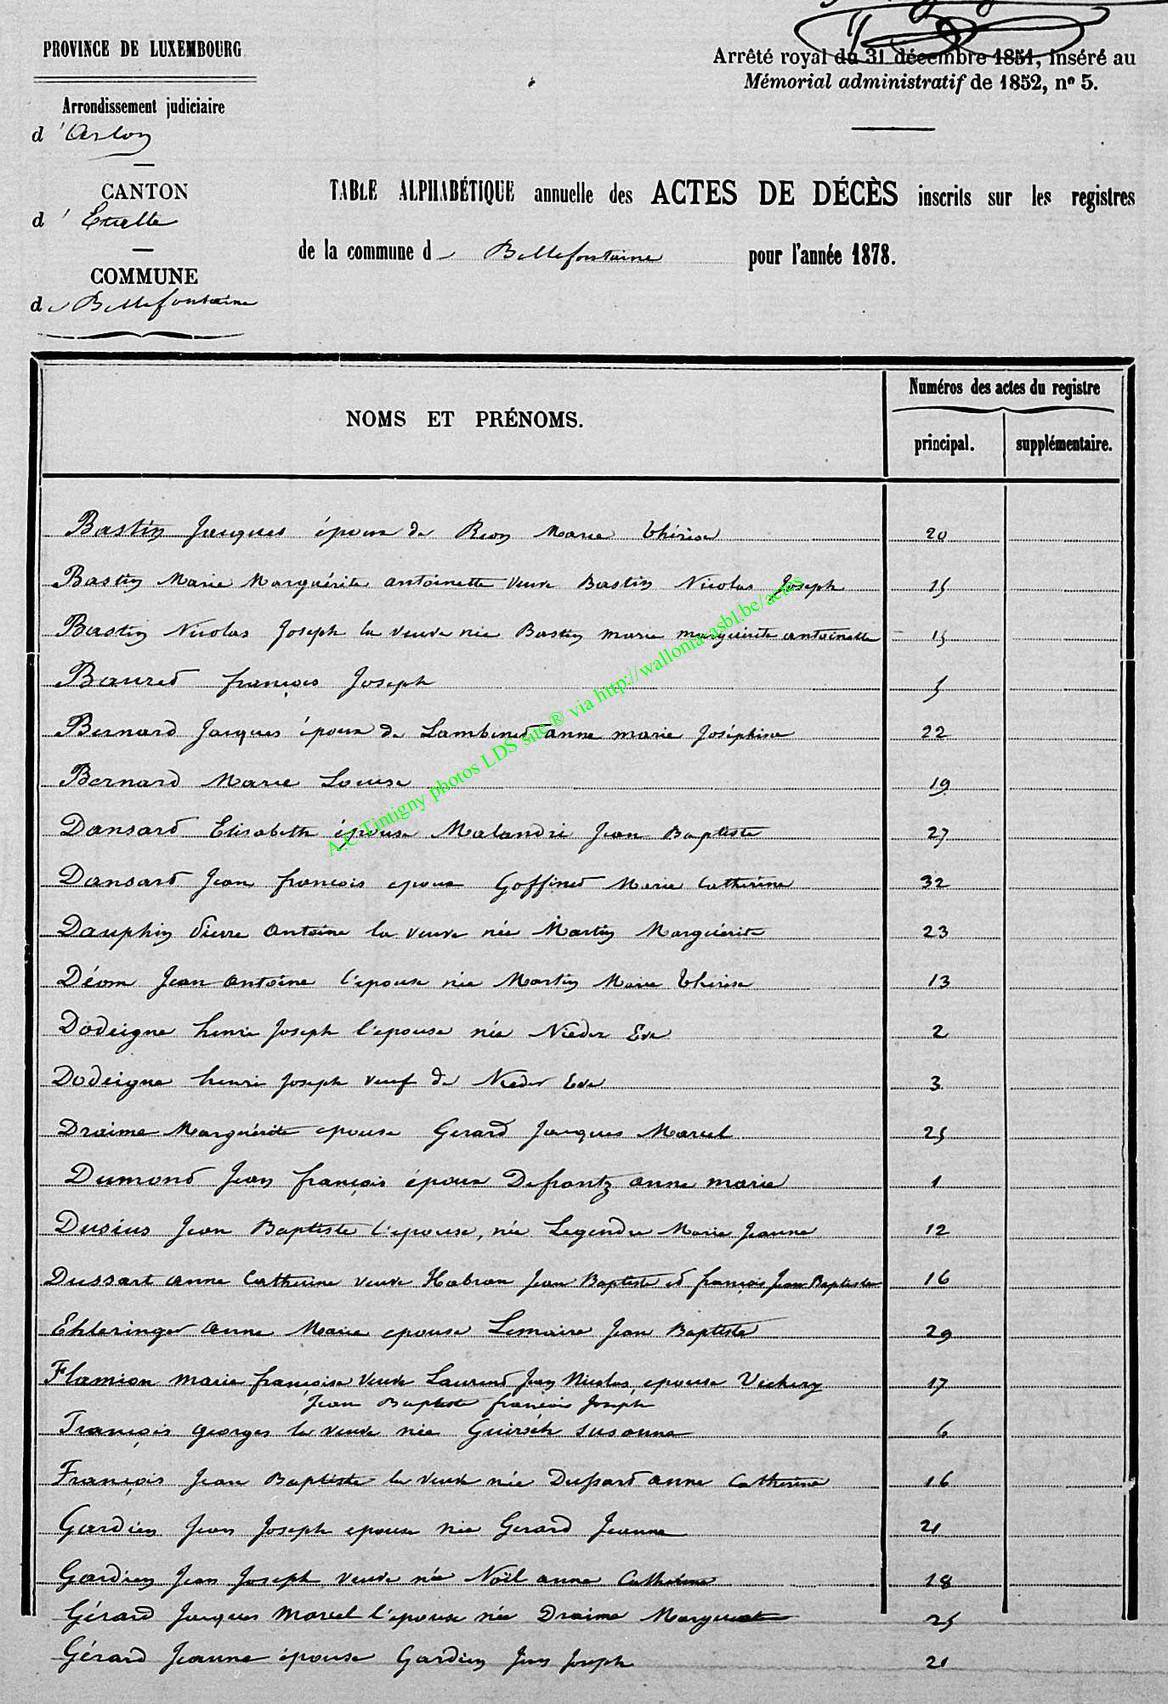 PROVINCE DE LUXEMBOURG
Arrêté royal du 31 décembre 1851, inséré au
Mémorial administratif de 1852, nº 5.
Arrondissement judiciaire
d'Arlon
CANTON
d'Etalle
COMMUNE
de Bellefontaine
TABLE ALPHABÉTIQUE annuelle des ACTES DE DÉCÈS inscrits sur les registres
de la commune de Bellefontaine pour l'année 1878.
NOMS ET PRÉNOMS.
Numéros des actes du registre
principal. supplémentaire.
Bastin Jacques époux de Rion Marie thérèse 20
Bastin Marie Marguérite antoinette veuve Bastin Nicolas Joseph 15
Bastin Nicolas Joseph la veuve née Bastin marie marguérite antoinette 15
Bauret françois Joseph 5
Bernard Jacques époux de Lambinet anne marie Joséphine 22
Bernard Marie Louise 19
Dansard Elisabeth épouse Malandri Jean Baptiste 27
Dansard Jean françois epoux Goffinet Marie Catherine 32
Dauphin Pierre Antoine la veuve née Martin Marguérite 23
Déom Jean Antoine l'épouse née Martin Marie thérèse 13
Dodeigne henri Joseph l'epouse née Nieder Eve 2
Dodeigne henri Joseph veuf de Nieder Eve 3
Draime Marguérite epouse Gerard Jacques Marcel 25
Dumond Jean françois époux Defrantz anne marie 1
Dusius Jean Baptiste l'epouse, née Legendre Marie Jeanne 12
Dussart anne Catherine veuve Habran Jean Baptiste et françois Jean Baptiste 16
Ehleringer Anne Marie epouse Lemaire Jean Baptiste 29
Flamion marie françoise veuve Laurent Jean Nicolas, epouse Vichery 17
Jean Baptiste françois Joseph
François georges la veuve née Guirsch susanne 6
François Jean Baptiste la veuve née Dussard anne Catherine 16
Gardien Jean Joseph epouse née Gerard Jeanne 21
Gardien Jean Joseph veuve née Noël anne Catherine 18
Gérard Jacques Marcel l'épouse née Draime Marguerite 25
Gérard Jeanne épouse Gardien Jean Joseph 21
A.C. Tintigny photos LDS site ® via http://wallonia-asbl.be/actes